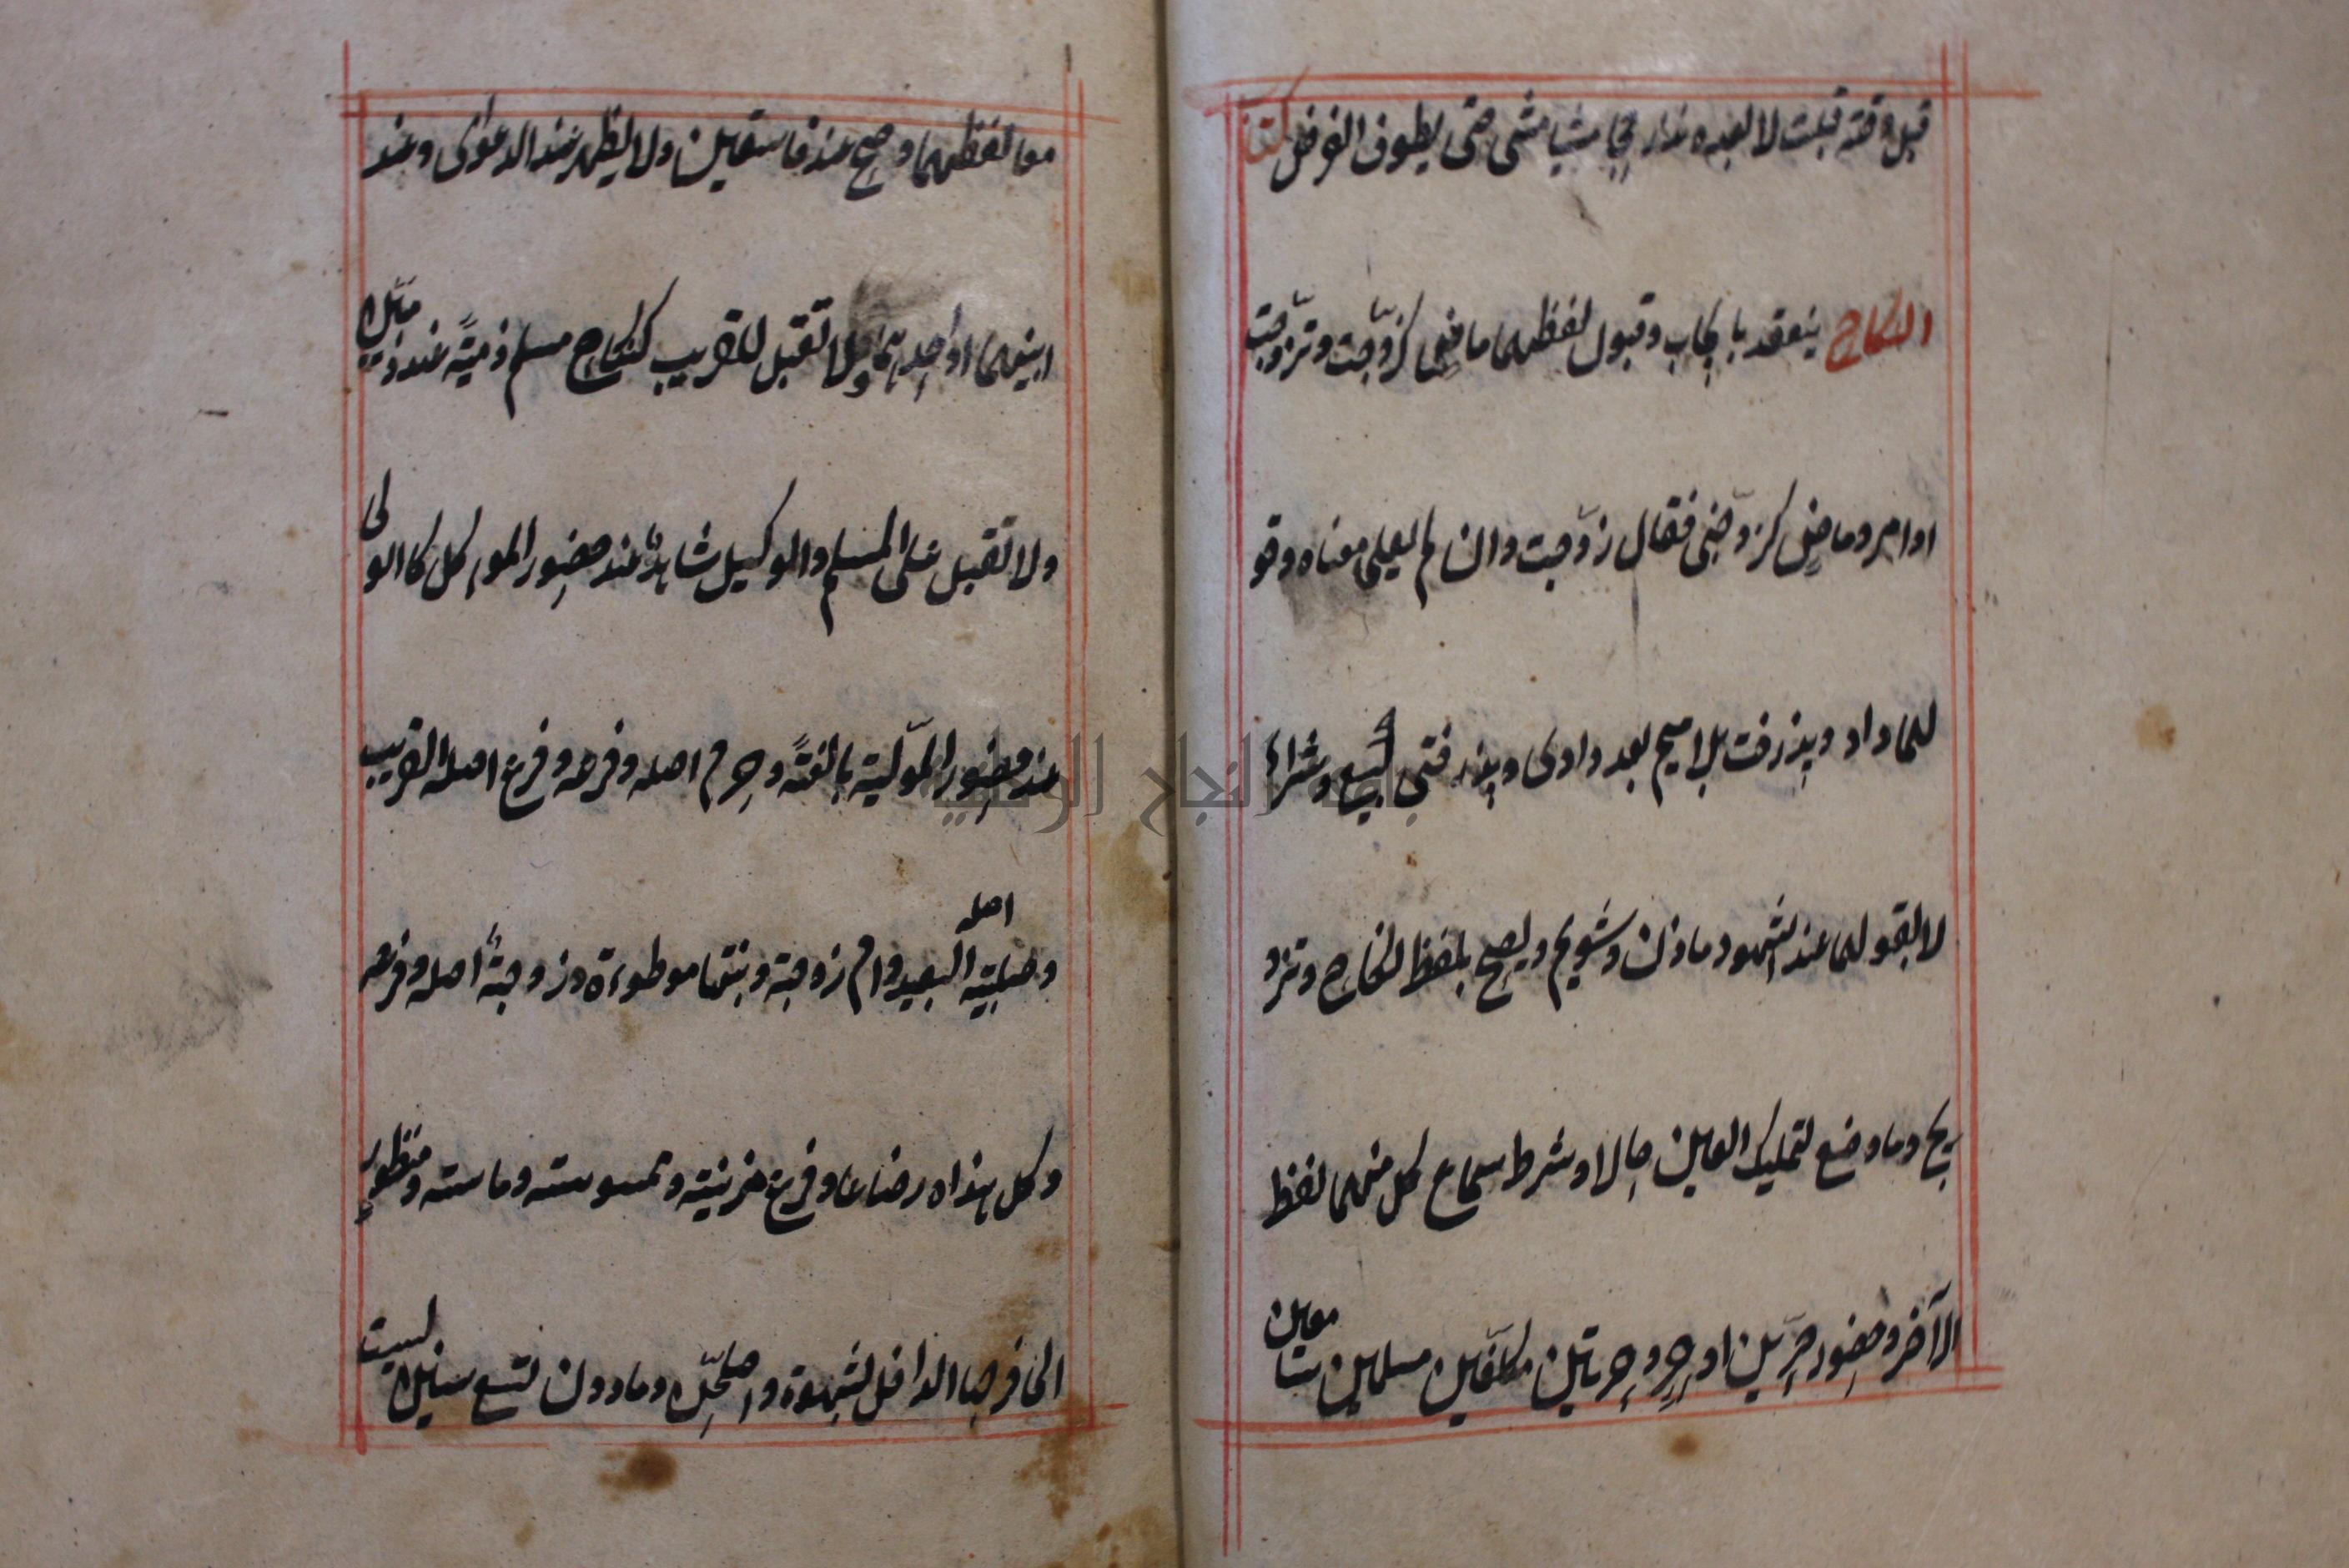 قبل وقته قبلت لا بعده نذر حجا مشيا مشى حتى يطوف الفرض كتاب
النكاح ينعقد بايجاب وقبول لفظهما ماض كزوّجت وتزوّجت
او امر وماض كزوّجني فقال زوّجت وان لم يعلما معناه وقو
لهما داد وپذرفت بلا ميم بعد دادى وپذرفتى كبيع وشراء
لا بقولهما عند الشهود مازن وشويم ويصح بلفظ النكاح وتزو
يج وما وضع لتمليك العين حالا وشرط سماع كل منهما لفظ
الآخر وحضور حرّين او حر وحرتين مكلّفين مسلمين سامعين
معا لفظهما وصح عند فاسقين ولا يظهر عند الدعوى وعند
ابنيهما او احدهما ولا تقبل للقريب كنكاح مسلم ذميّة عند ذميّين
ولا تقبل على المسلم والوكيل شاهد عند حضور الموكل كالولى
عند حضور الموّلية بالغة وحرم اصله وفرعه وفرع اصله القريب
وصلبيّة اصله البعيد وام زوجته وبنتها موطوءة وزوجة اصله وفرعه
وكل هذه رضاعا وفرع مزنيته وممسوسته وماسته ومنظور
الى فرجها الداخل بشهوة واصلهنّ وما دون تسع سنين ليست
جامعة النجاح الوطنية